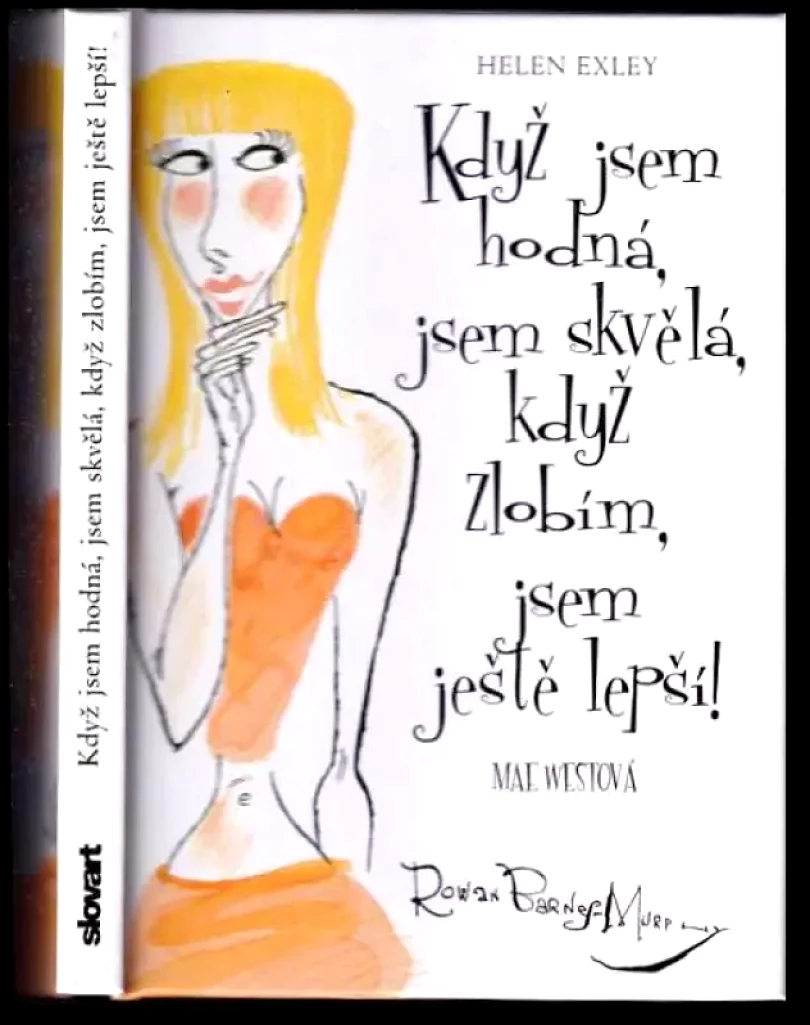 Když jsem hodná, jsem skvělá, když zlobím, jsem ještě lepší!
slovart
HELEN EXLEY
Když jsem
hodná,
jsem skvělá,
když
zlobím,
jsem
ještě lepší!
MAE WESTOVÁ
ROWAN BARNES-MURPHY